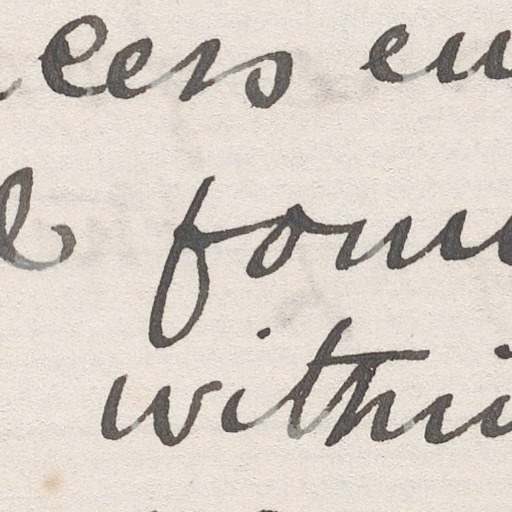 cers en
l foun
within